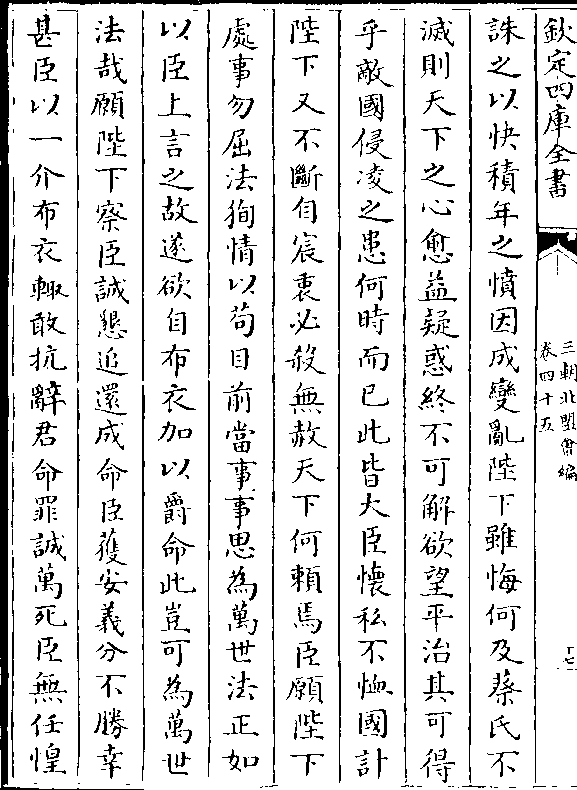 欽定四庫全書
三朝北盟會編
卷四十五
誅之以快積年之憤因成變亂陛下雖悔何及蔡氏不
滅則天下之心愈益疑惑終不可解欲望平治其可得
乎敵國侵凌之患何時而已此皆大臣懷私不恤國計
陛下又不斷自宸衷必殺無赦天下何賴焉臣願陛下
處事勿屈法狥情以茍目前當事事思為萬世法正如
以臣上言之故遂欲自布衣加以爵命此豈可為萬世
法哉願陛下察臣誠懇追還成命臣獲安義分不勝幸
甚臣以一介布衣輙敢抗辭君命罪誠萬死臣無任惶